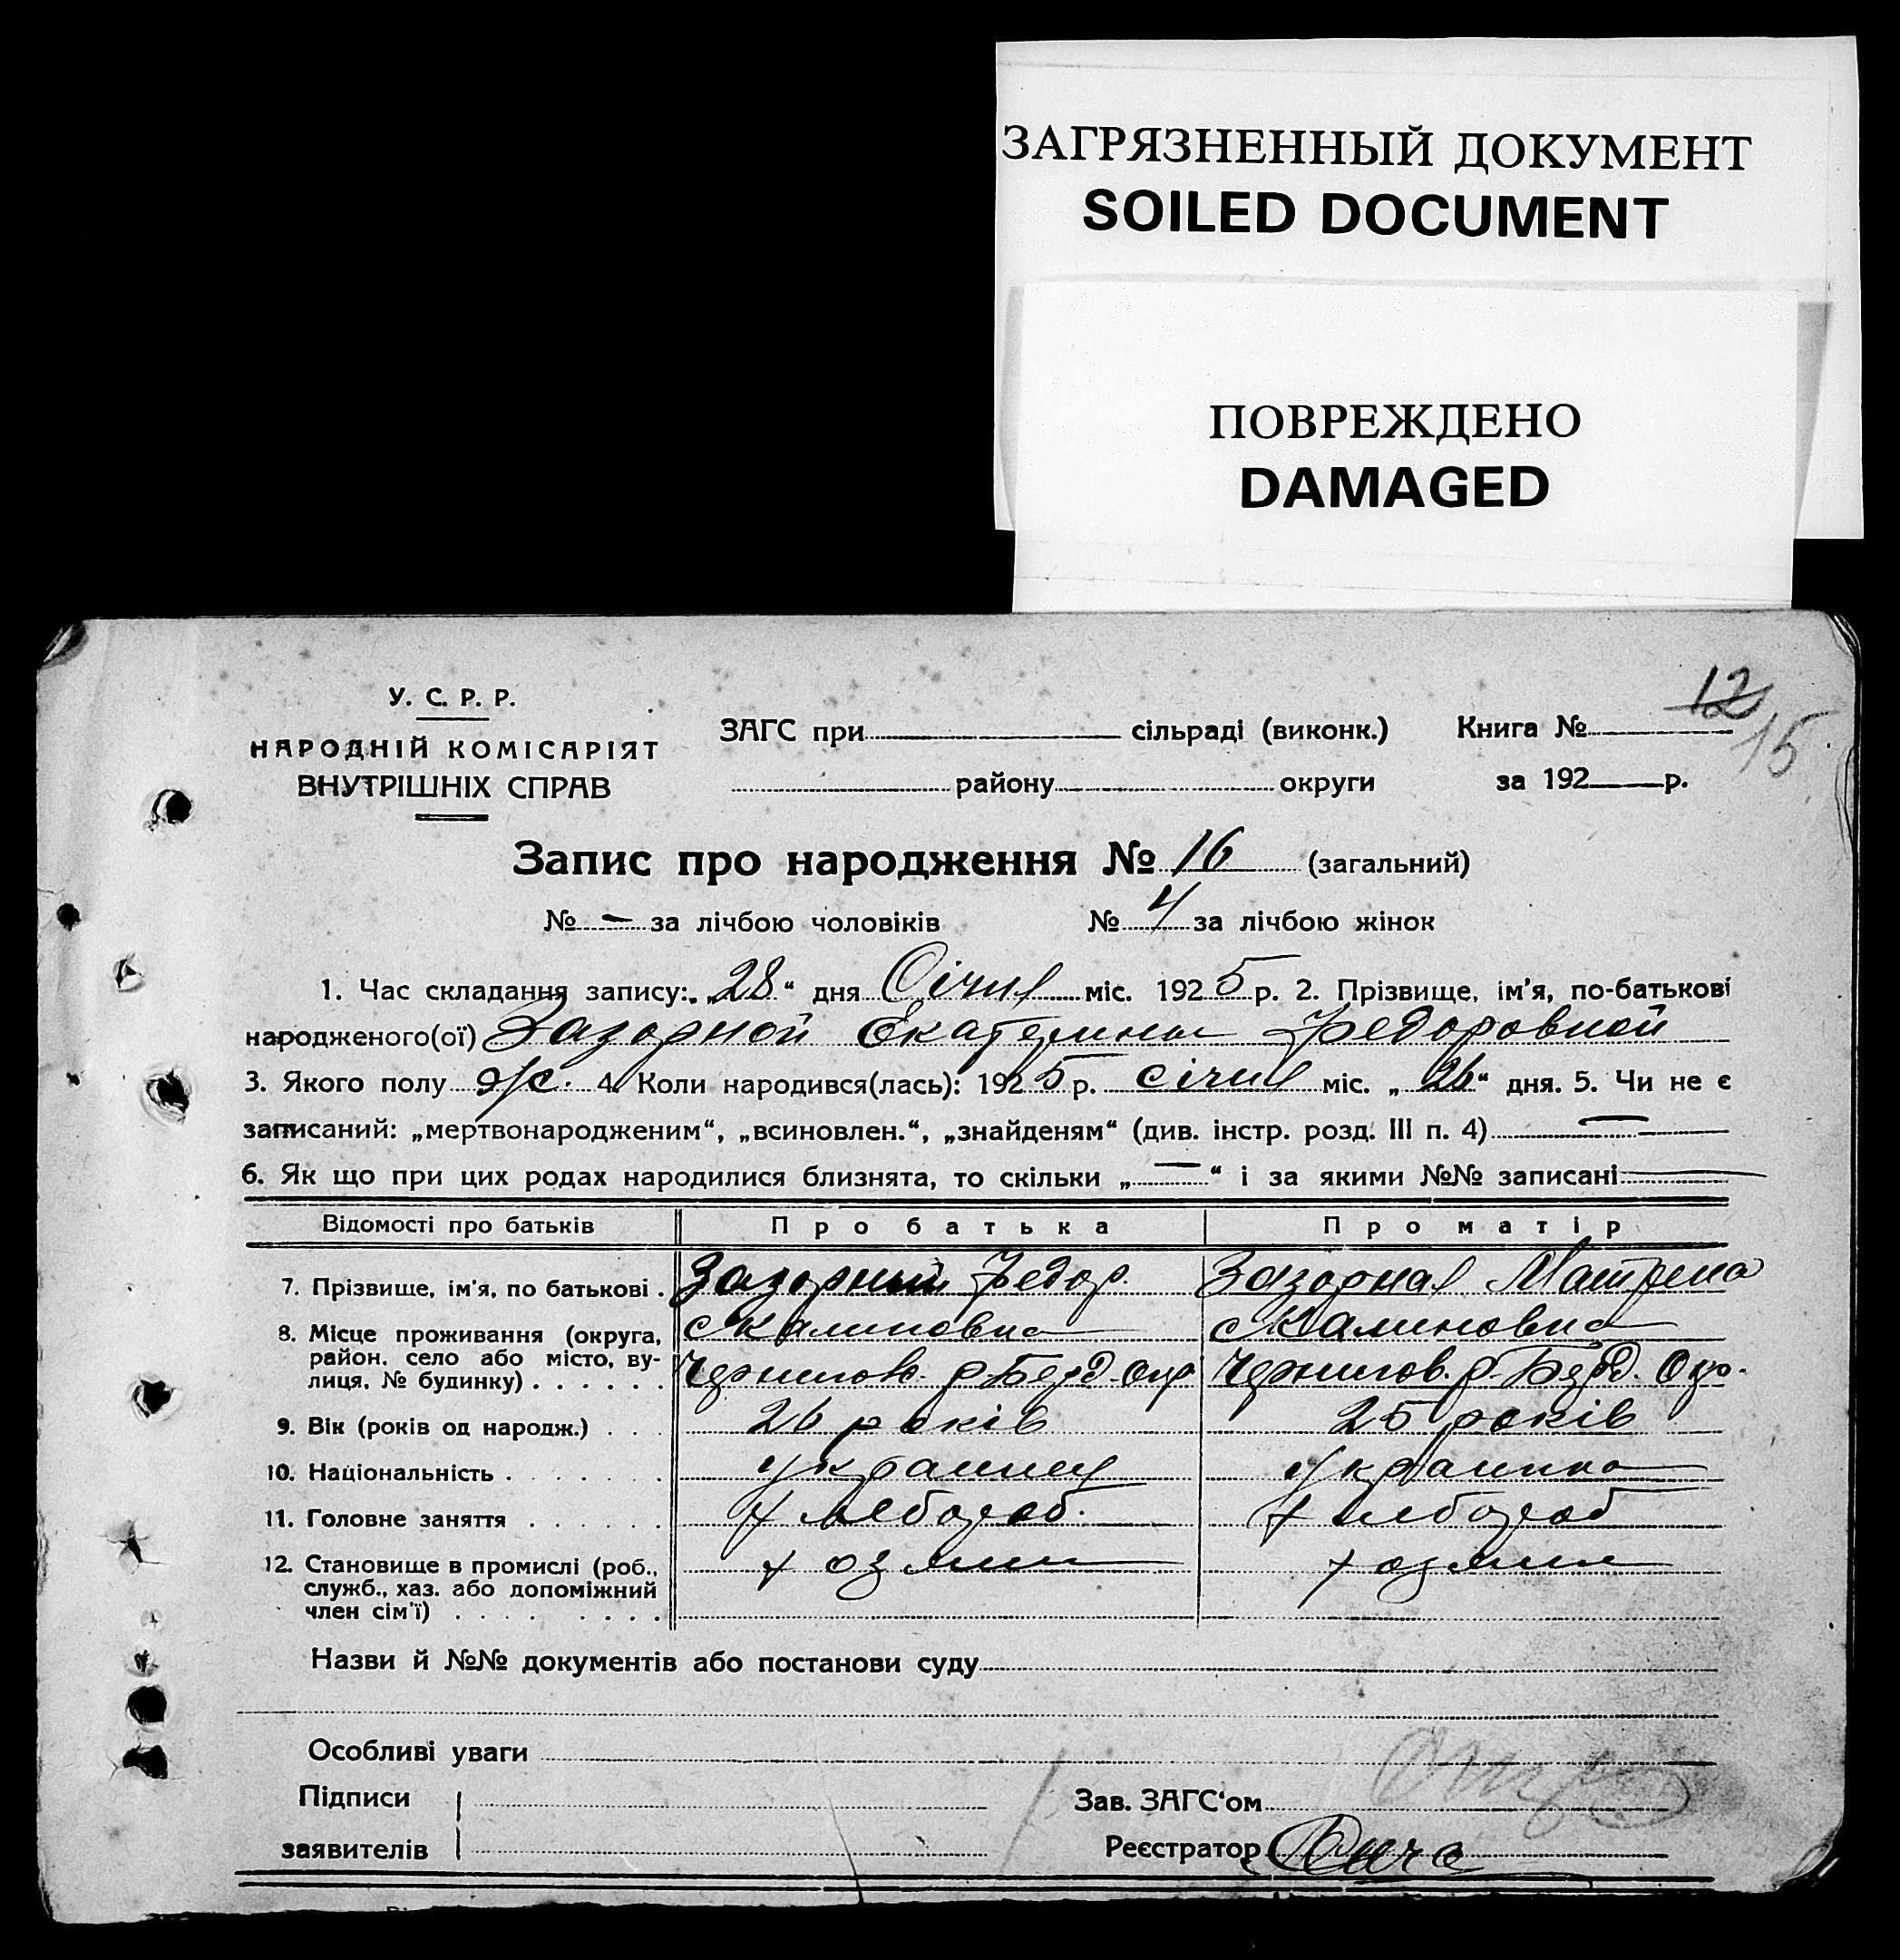 ЗАГРЯЗНЕННЫЙ ДОКУМЕНТ
SOILED DOCUMENT
ПОВРЕЖДЕНО
DAMAGED
12
15
У. С. Р. Р.
НАРОДНІЙ КОМІСАРІЯТ
ВНУТРІШНІХ СПРАВ
ЗАГС при сільраді (виконк.) Книга №
району округи за 192 р.
Запис про народження № 16 (загальний)
№ — за лічбою чоловіків № 4 за лічбою жінок
1. Час складання запису: „28“ дня Січня міс. 1925 р. 2. Прізвище, ім'я, по-батькові
народженого(ої) Зазорной Екатерины Федоровной
3. Якого полу ж. 4. Коли народився(лась): 1925 р. січня міс. „26“ дня. 5. Чи не є
записаний: „мертвонародженим“, „всиновлен.“, „знайденям“ (див. інстр. розд. III п. 4) —
6. Як що при цих родах народилися близнята, то скільки „—“ і за якими №№ записані —
Відомості про батьків Про батька Про матір
7. Прізвище, ім'я, по батькові . Зазорный Федор. Зазорная Матрена
8. Місце проживання (округа, с Калиновка с Калиновка
район, село або місто, ву-
лиця, № будинку) . . . . . . Чернигов. р. Берд. Окр Чернигов. р. Берд. Окр.
9. Вік (років од народж.) . . . 26 років 25 років
10. Національність . . . . . . . Украинец Украинка
11. Головне заняття . . . . . . Хлебороб. Хлебороб
12. Становище в промислі (роб., хозяин хозяин
служб., хаз. або допоміжний
член сім'ї) . . . . . . . .
Назви й №№ документів або постанови суду
Особливі уваги
Підписи Зав. ЗАГС'ом
заявителів Реєстратор